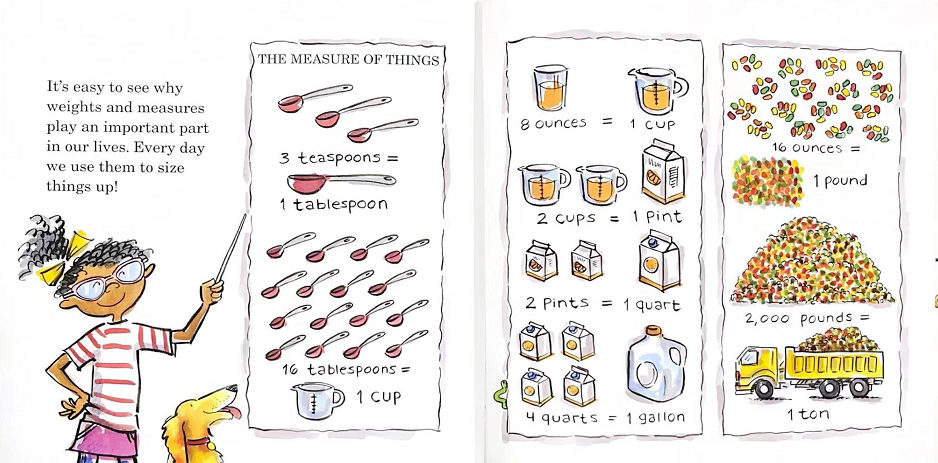 It's easy to see why
weights and measures
play an important part
in our lives. Every day
we use them to size
things up!
THE MEASURE OF THINGS
3 teaspoons =
1 tablespoon
16 tablespoons =
1 cup
8 ounces = 1 cup
2 cups = 1 pint
2 pints = 1 quart
4 quarts = 1 gallon
16 ounces =
1 pound
2,000 pounds =
1 ton